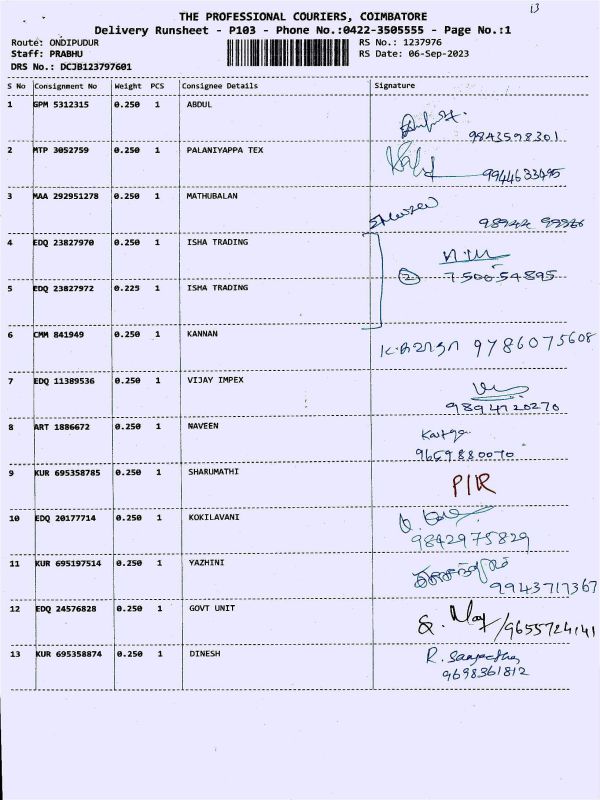 13
THE PROFESSIONAL COURIERS, COIMBATORE
Delivery Runsheet - P103 - Phone No.:0422-3505555 - Page No.:1
Route: ONDIPUDUR RS No.: 1237976
Staff: PRABHU RS Date: 06-Sep-2023
DRS No.: DCJB123797601
S No Consignment No Weight PCS Consignee Details Signature
1 GPM 5312315 0.250 1 ABDUL
9843598301
2 MTP 3052759 0.250 1 PALANIYAPPA TEX
9944633495
3 MAA 292951278 0.250 1 MATHUBALAN
4 EDQ 23827970 0.250 1 ISHA TRADING
2 750054895
5 EDQ 23827972 0.225 1 ISHA TRADING
6 CMM 841949 0.250 1 KANNAN
9786075608
7 EDQ 11389536 0.250 1 VIJAY IMPEX
9894720270
8 ART 1886672 0.250 1 NAVEEN
9659880070
9 KUR 695358785 0.250 1 SHARUMATHI
PIR
10 EDQ 20177714 0.250 1 KOKILAVANI
9842975829
11 KUR 695197514 0.250 1 YAZHINI
9943717367
12 EDQ 24576828 0.250 1 GOVT UNIT
/9655724141
13 KUR 695358874 0.250 1 DINESH
9698361812